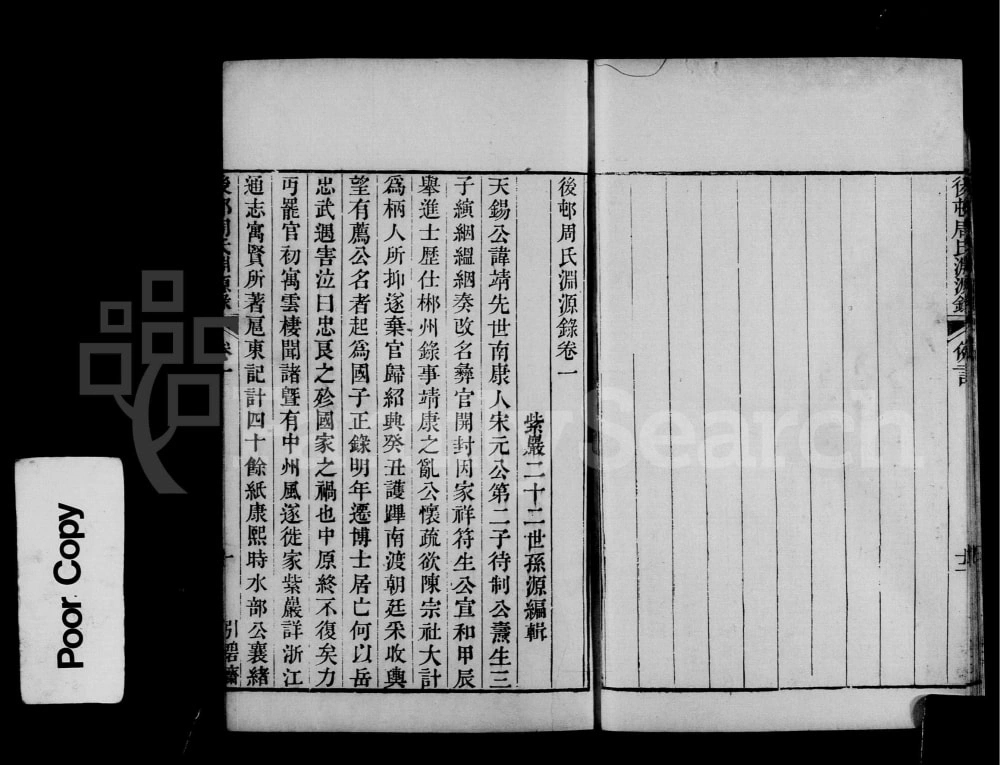 後邨周氏淵源錄
例言
十二
後邨周氏淵源錄卷一
紫巖二十二世孫源編輯
天錫公諱靖先世南康人宋元公第二子待制公燾生三
子縯絪縕絪奏改名彝官開封因家祥符生公宣和甲辰
舉進士歷仕郴州錄事靖康之亂公懷疏欲陳宗社大計
爲柄人所抑遂棄官歸紹興癸丑護蹕南渡朝廷采收輿
望有薦公名者起爲國子正錄明年遷博士居亡何以岳
忠武遇害泣曰忠良之殄國家之禍也中原終不復矣力
丐罷官初寓雲棲聞諸暨有中州風遂徙家紫巖詳浙江
通志寓賢所著扈東記計四十餘紙康熙時水部公襄緒
後邨周氏淵源錄
卷一
十
FamilySearch
Poor Copy